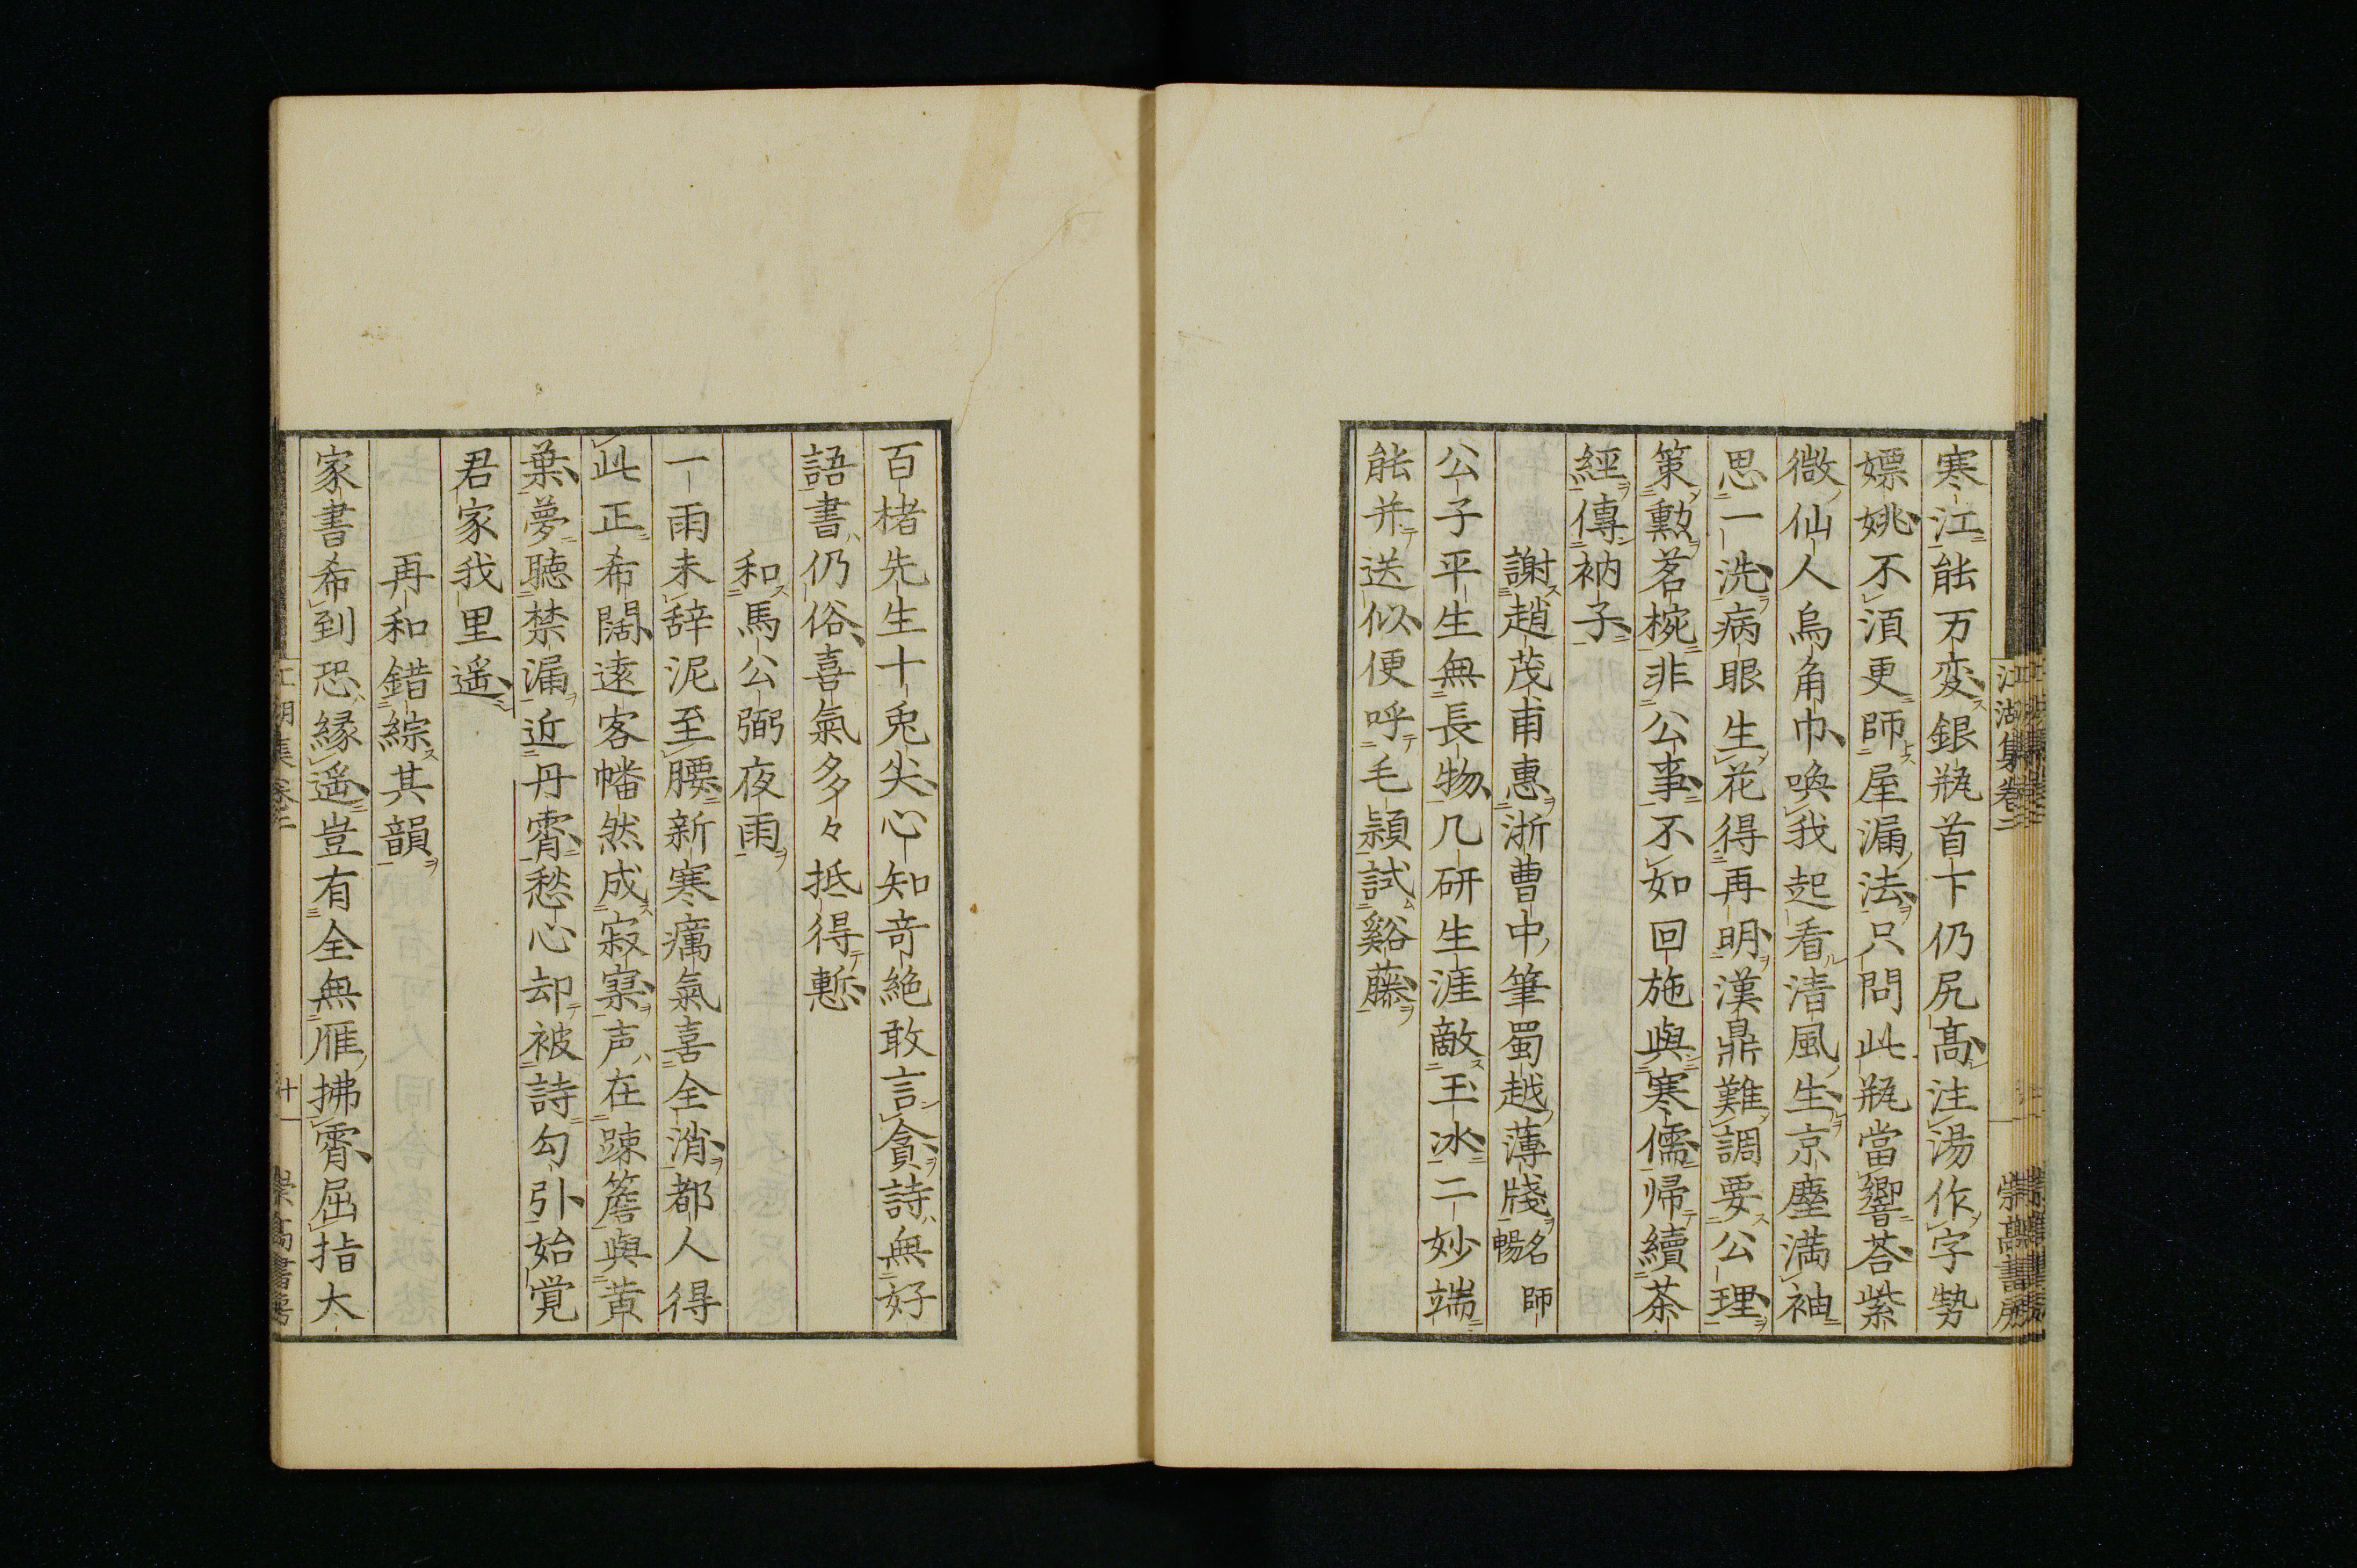 寒江能万変銀瓶首下仍尻髙注湯作字勢
嫖姚不須更師屋漏法只問此瓶當響荅紫
微仙人烏角巾喚我起看清風生京塵満袖
思一洗病眼生花得再明漢鼎難調要公理
策勲茗椀非公事不如回施與寒儒帰續茶
經傳衲子
謝趙茂甫惠浙曹中筆蜀越薄牋名師暢
公子平生無長物几研生涯敵玉冰二妙端
能并送似便呼毛頴試谿藤
百楮先生十兎尖心知竒絶敢言貪詩無好
語書仍俗喜氣多々抵得慙
和馬公弼夜雨
一雨未辞泥至腰新寒癘氣喜全消都人得
此正希闊遠客幡然成寂寞声在踈簷與黄
葉夢聴禁漏近丹霄愁心却被詩勾引始覚
君家我里遥
再和錯綜其韻
家書希到恐縁遥豈有全無雁拂霄屈指大
江湖集巻二
崇髙書房